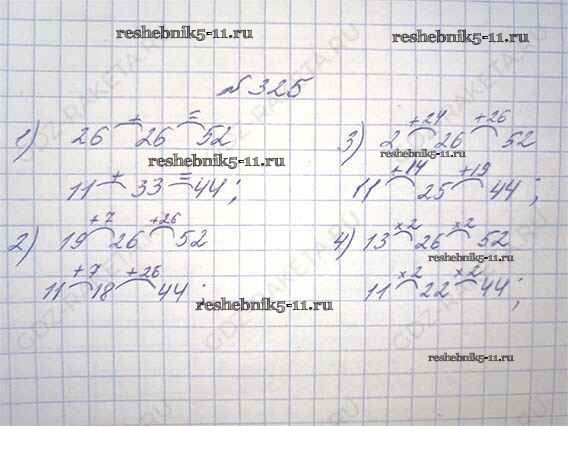 reshebnik5-11.ru
reshebnik5-11.ru
№325
1) 26 + 26 = 52
reshebnik5-11.ru
11 + 33 = 44;
2) 19 +7 26 +26 52
11 +7 18 +26 44;
reshebnik5-11.ru
3) 2 +24 26 +26 52
11 +14 25 +19 44;
4) 13 ×2 26 ×2 52
reshebnik5-11.ru
11 ×2 22 ×2 44;
reshebnik5-11.ru
GDZ-RAKETA.RU
GDZ-RAKETA.RU
GDZ-RAKETA.RU